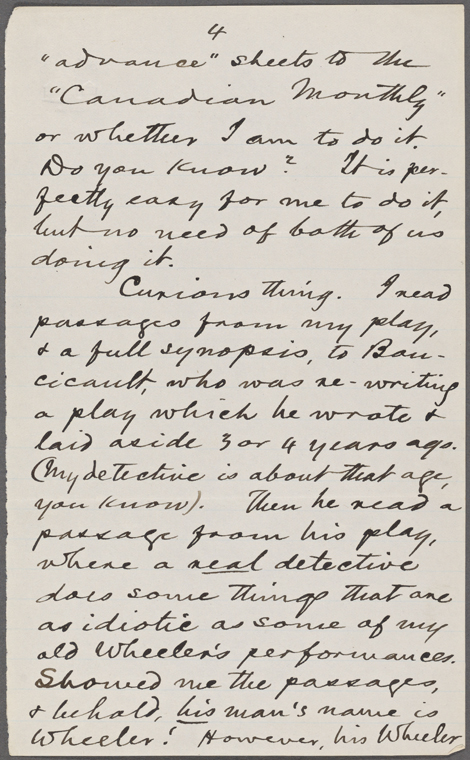 4
"advance" sheets to the
"Canadian Monthly"
or whether I am to do it.
Do you know? It is per-
fectly easy for me to do it,
but no need of both of us
doing it.
Curious thing. I read
passages from my play,
& a full synopsis, to Bou-
cicault, who was re-writing
a play which he wrote &
laid aside 3 or 4 years ago.
(My detective is about that age,
you know). Then he read a
passage from his play,
where a real detective
does some things that are
as idiotic as some of my
old Wheeler's performances.
Showed me the passages,
& behold, his man's name is
Wheeler! However, his Wheeler